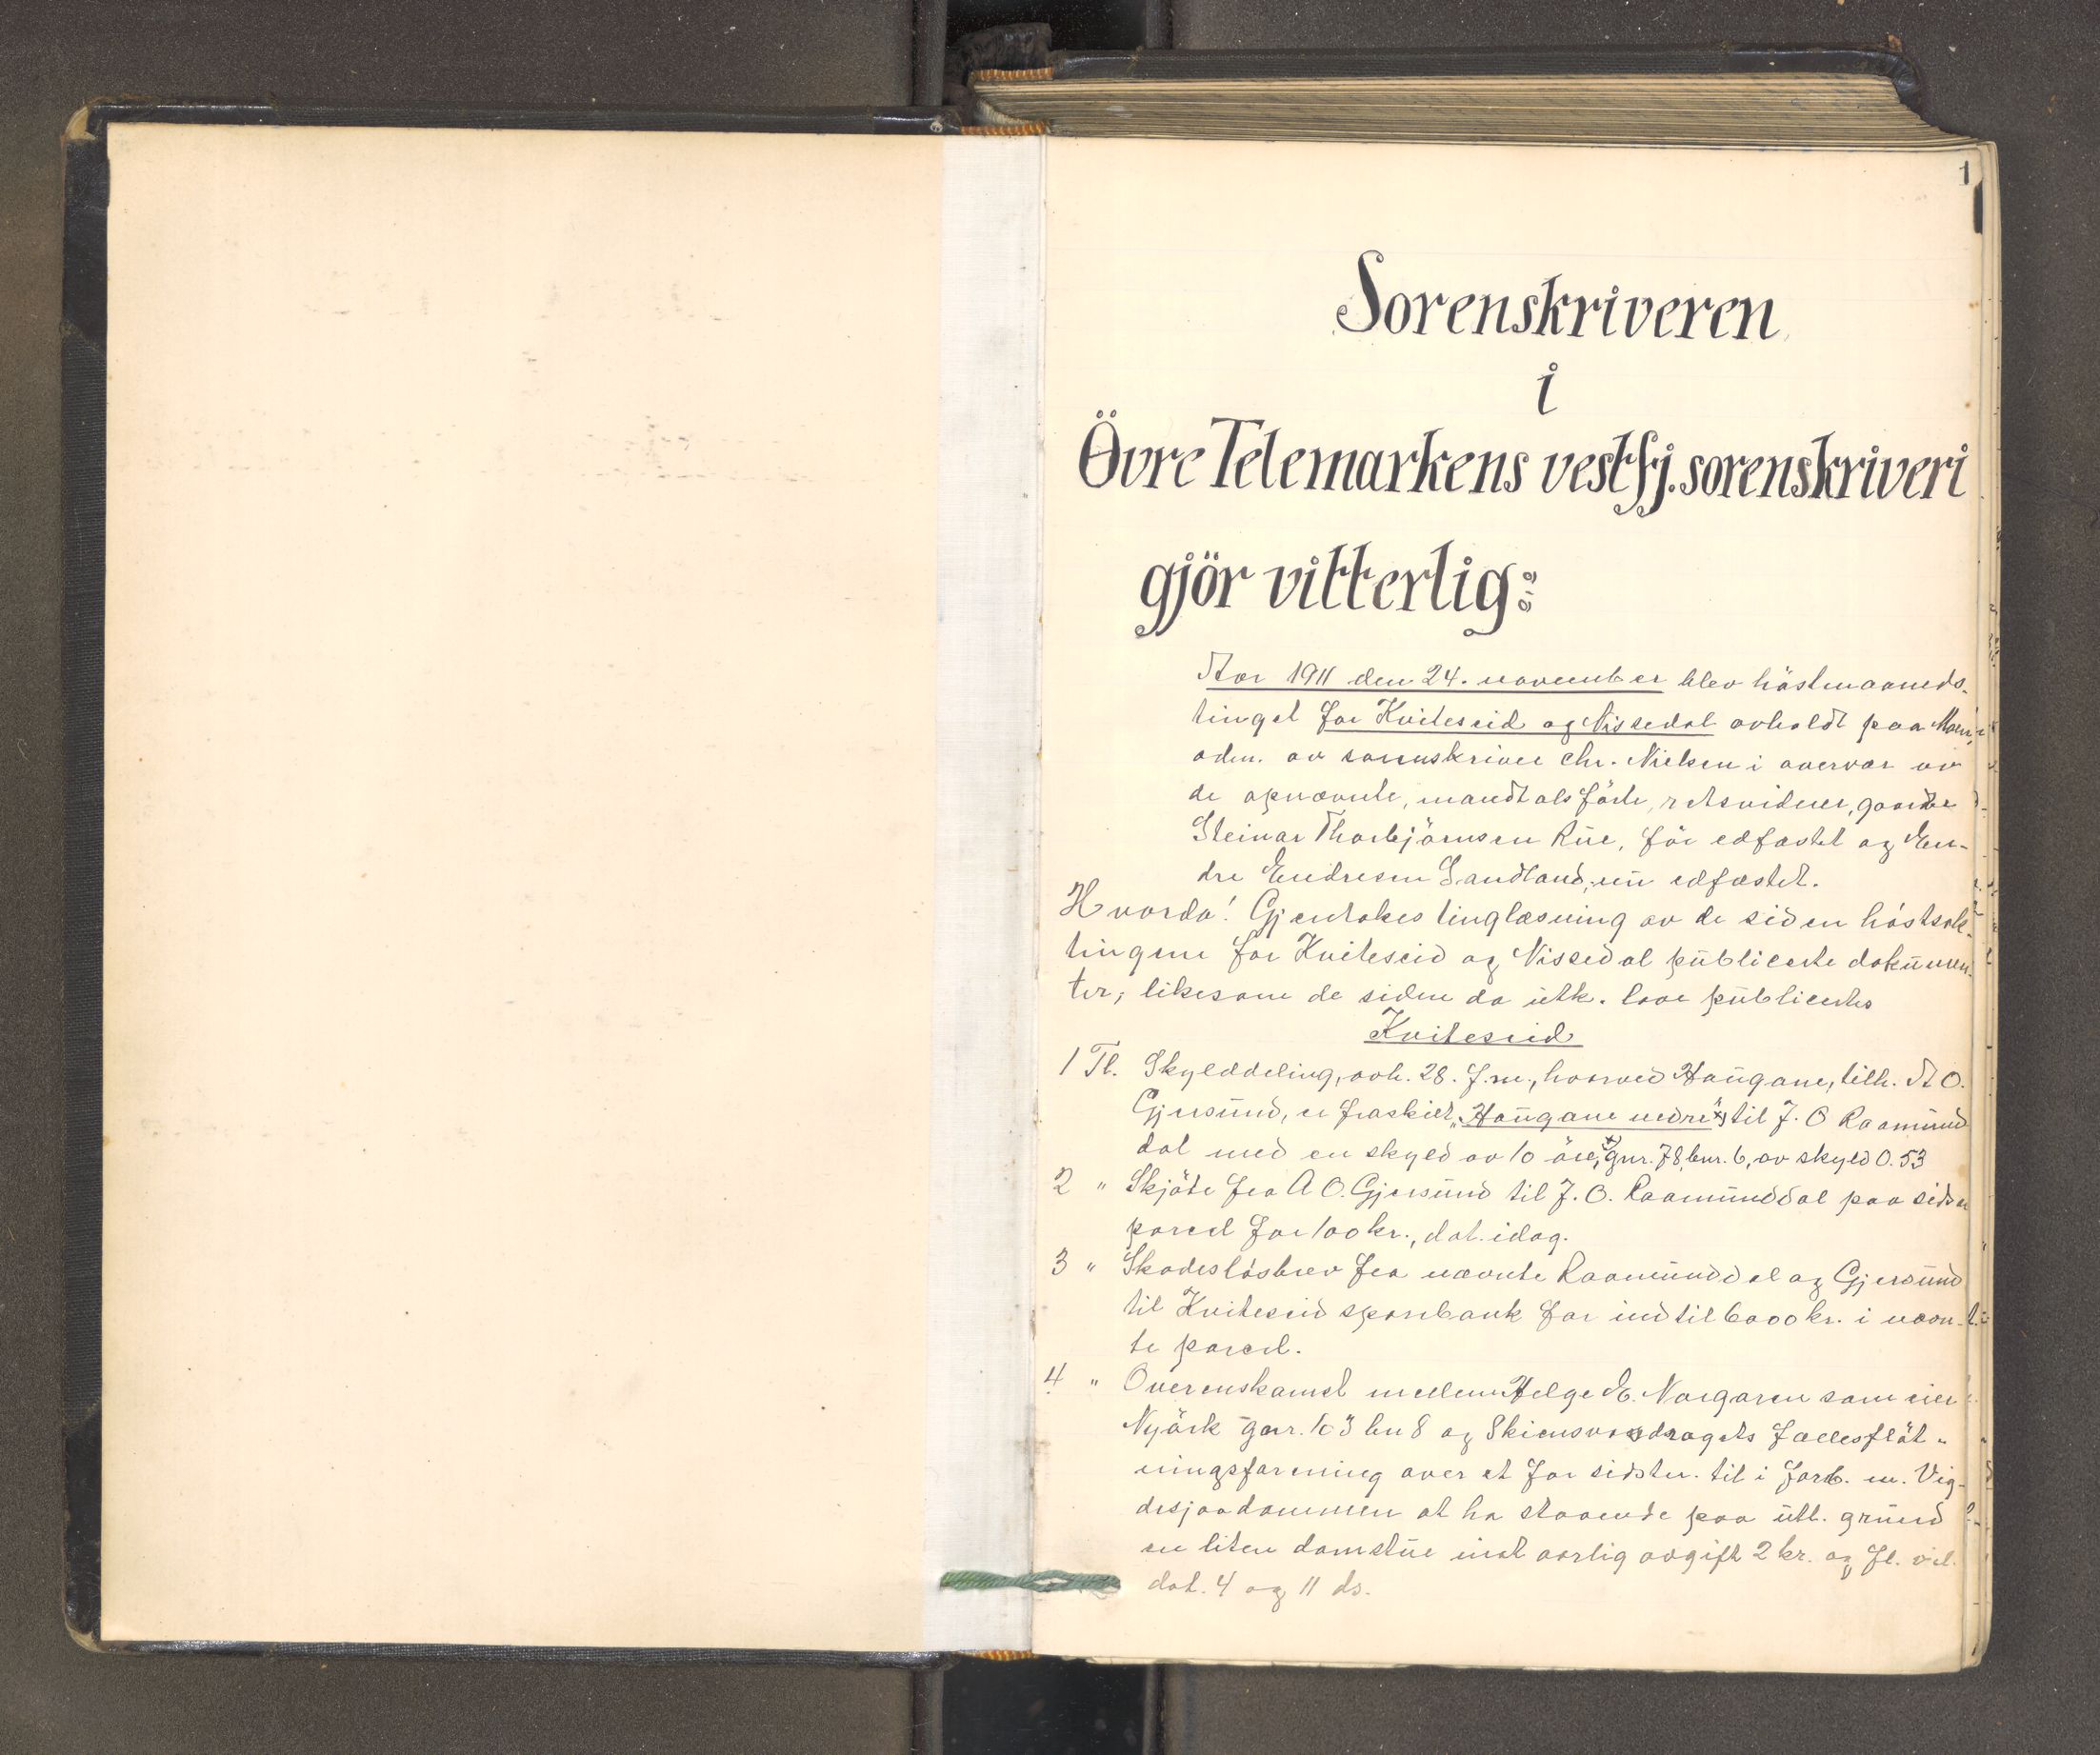 1
Sorenskriveren
i
Övre Telemarkens vestfj. sorenskriveri
gjör vitterlig:
Aar 1911 den 24. november blev höstmaaneds-
tinget for Kviteseid og Nissedal avholdt paa Moen,
adm. av sorenskriver Chr. Nielsen i overvær av
de opnævnte, mandtalsförte, retsvidner, gaardbr
Steinar Thorbjörnsen Rue, för edfæstet og En-
dre Endresen Sandland, nu edfæstet.
Hvorda! Gjentokes tinglæsning av de siden höstsak-
tingene for Kviteseid og Nissedal publicerte dokumen-
ter; likesom de siden da utk. love publicertes
Kviteseid
1 Tl. Skylddeling, avh. 28. f.m., hvorved Haugane, tilh. A O.
Gjersund, er fraskilt „Haugane nedre" x) til J. O Raamund
dal med en skyld av 10 öre, x) gnr. 78, bnr. 6, av skyld 0.53
2 " Skjöte fra A O. Gjersund til J. O. Raamunddal paa sidstn
parcel for 100 kr., dat. idag.
3 " Skadeslösbrev fra nævnte Raamunddal og Gjersund
til Kviteseid sparebank for indtil 6000 kr. i nævn-
te parcel.
4 " Overenskomst mellem Helge E. Norgaren som eier
Nyörk gnr. 103 bn 8 og Skiensvasdragets Fællesflöt-
ningsforening over et for sidstn. til i forb. m. Vig-
desjaadammen at ha staaende paa utl. grund
en liten damstue mot aarlig avgift 2 kr. og fl. vil.
dat. 4 og 11 ds.